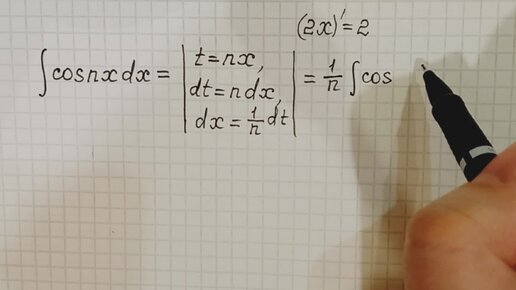 (2x)′=2
∫cosnxdx = | t=nx, dt=ndx, dx=1/n dt | = 1/n ∫cos